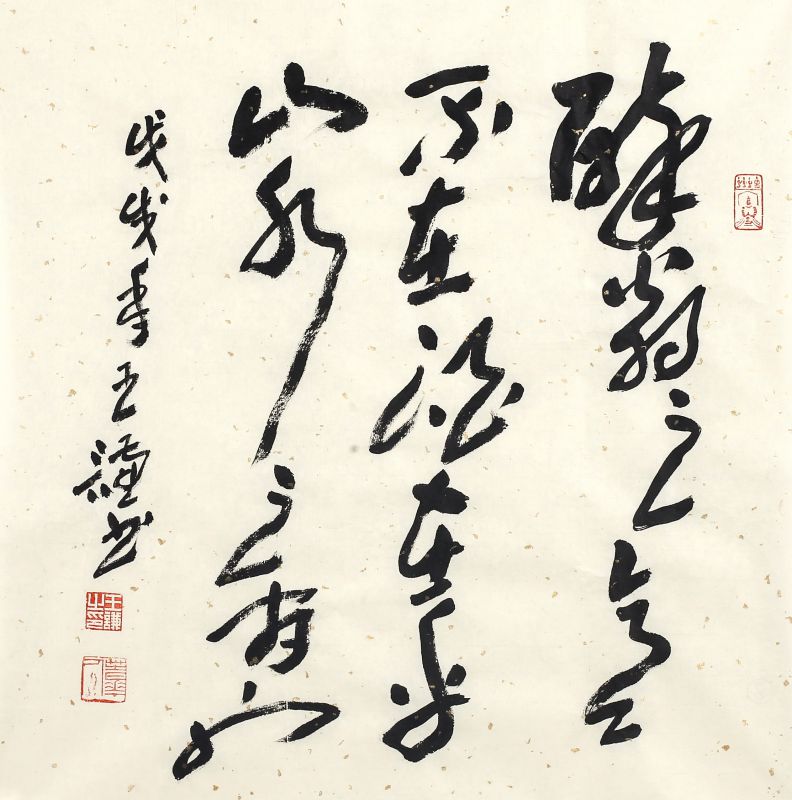 醉翁之意
不在酒在乎
山水之間也
戊戌年王謙書
王謙之印